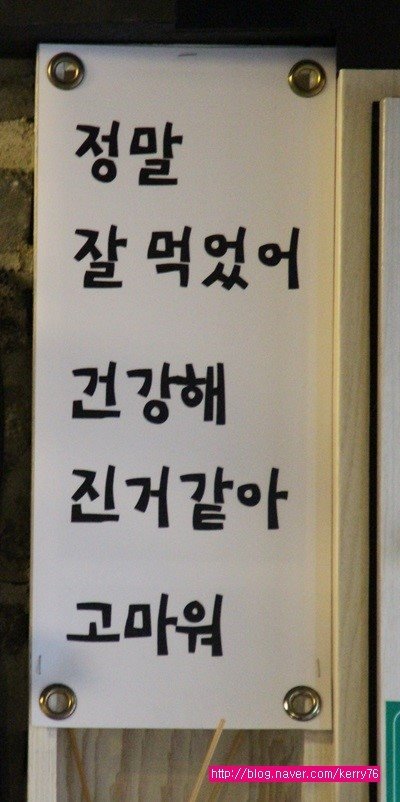 정말
잘 먹었어
건강해
진거같아
고마워
http://blog.naver.com/kerry76